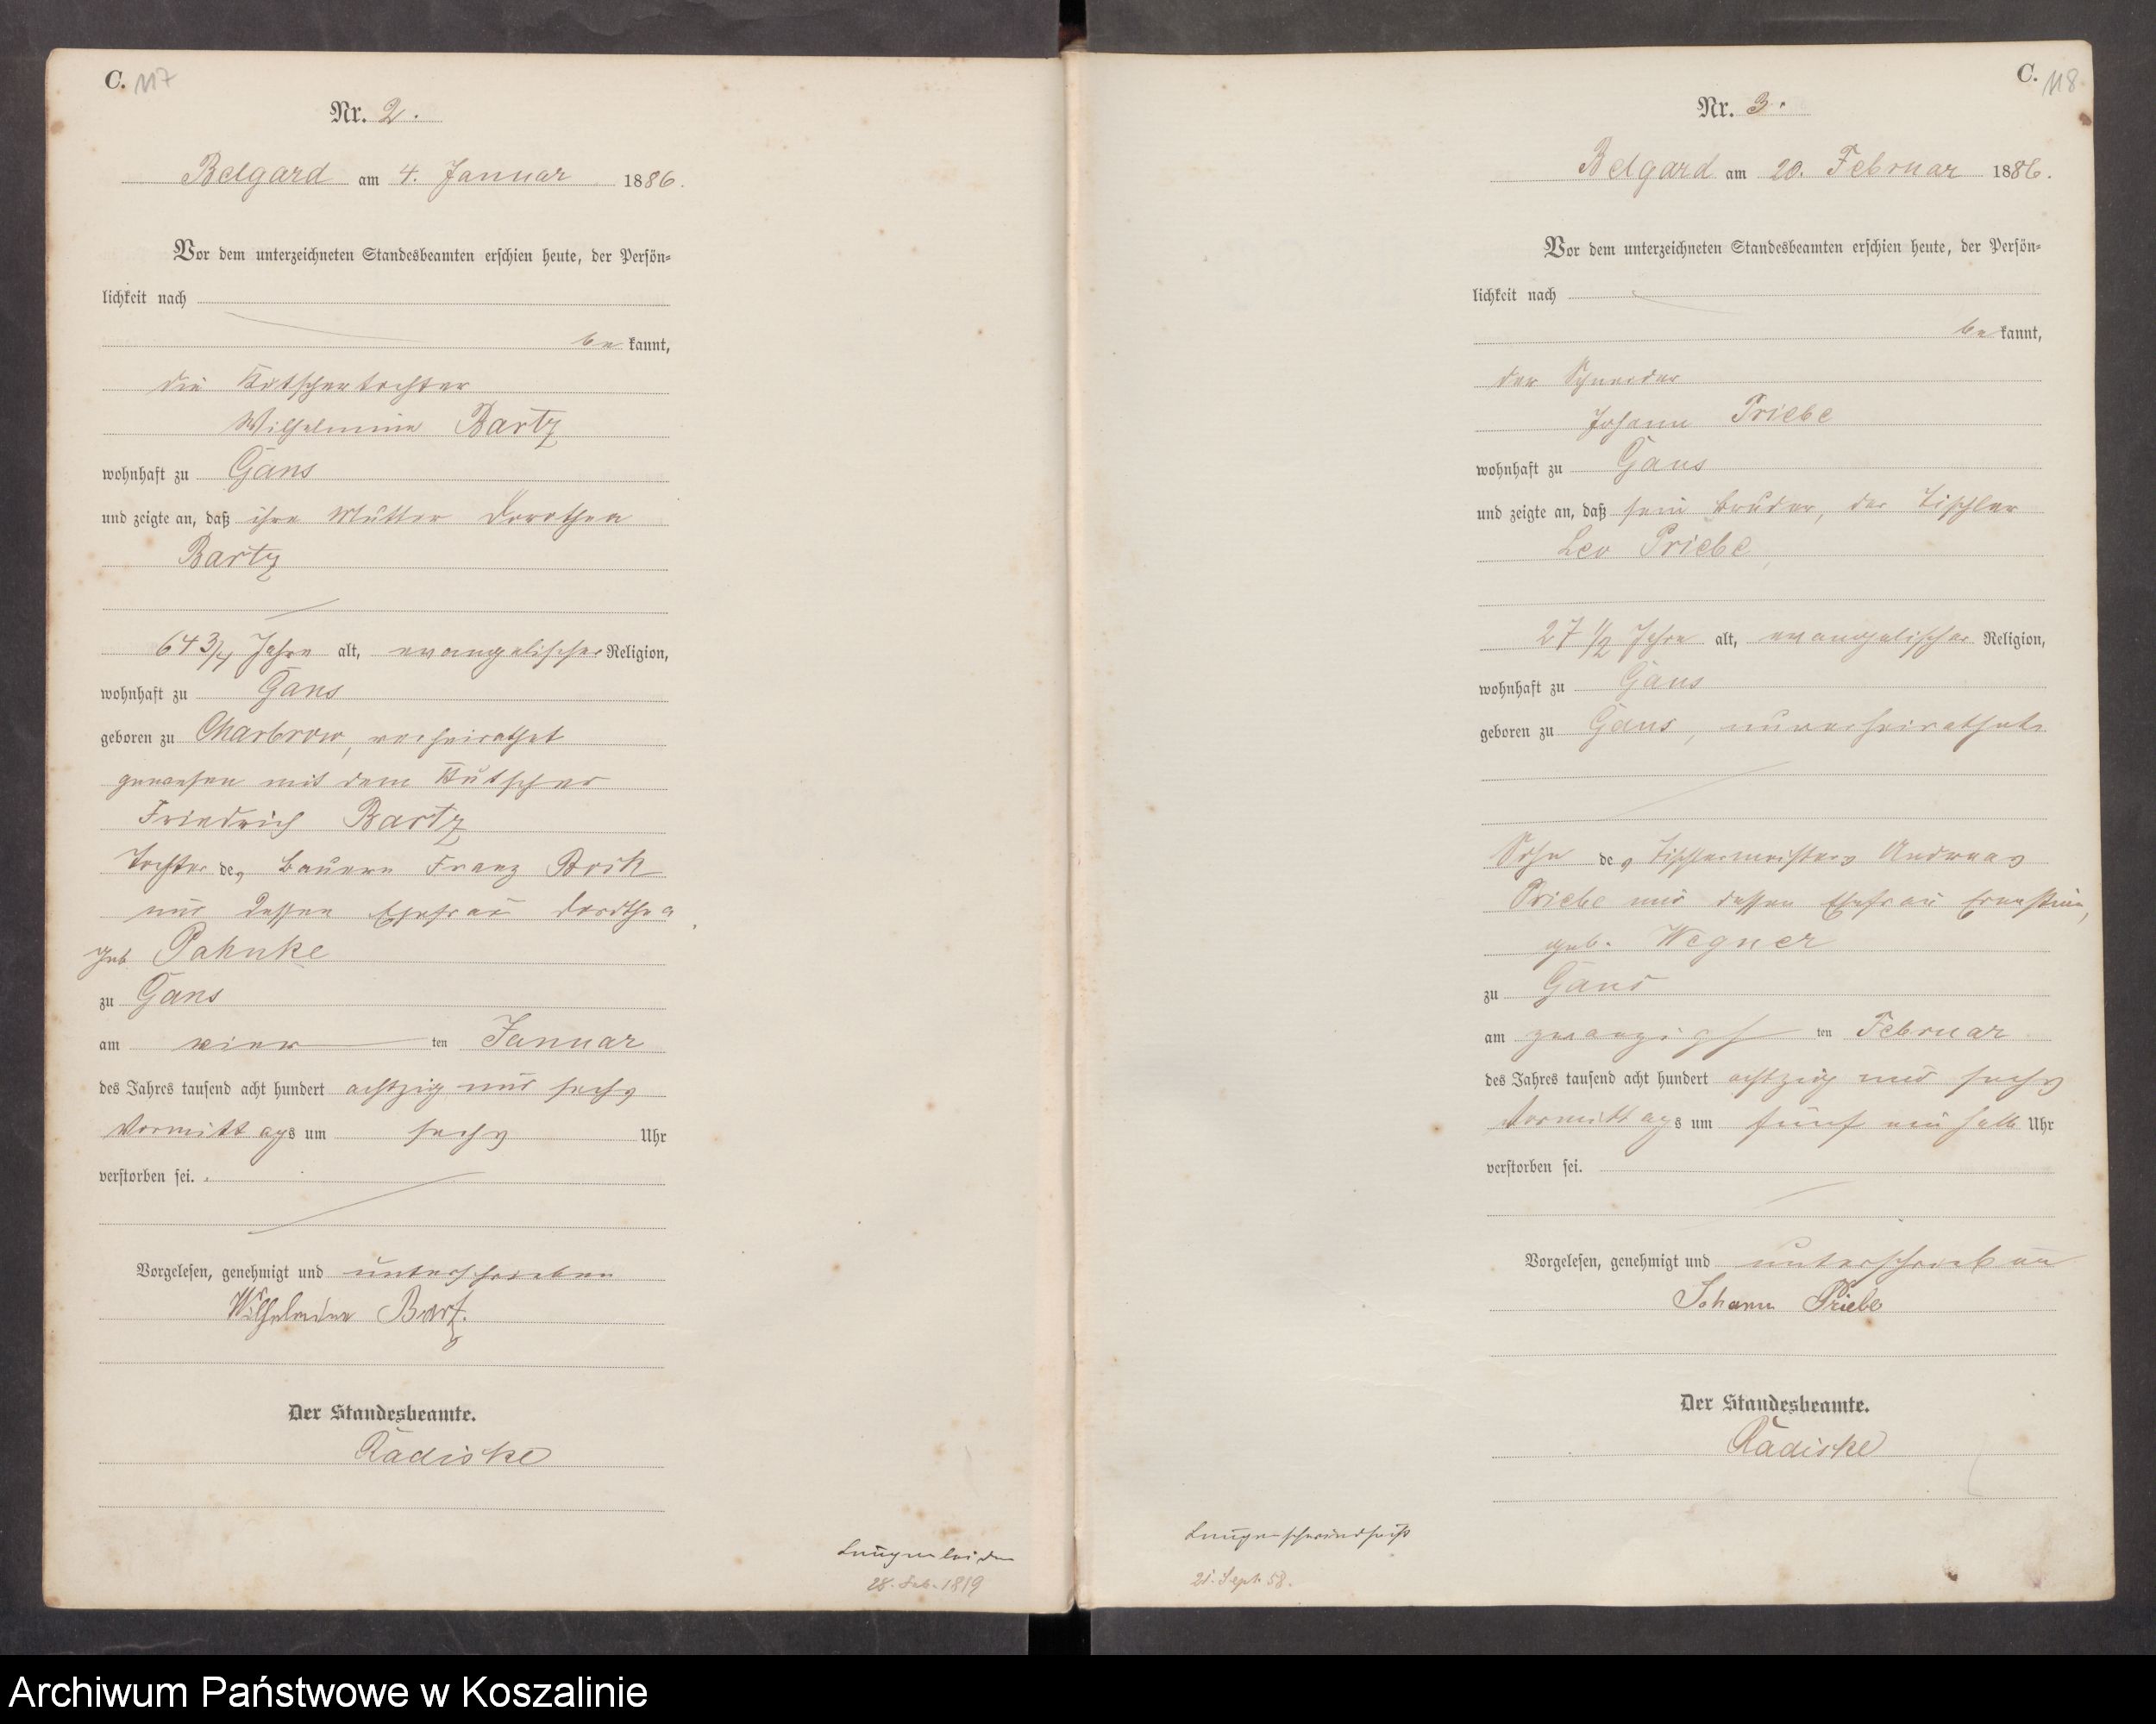 C. 117
Nr. 2.
Belgard am 4. Januar 1886.
Vor dem unterzeichneten Standesbeamten erschien heute, der Persön-
lichkeit nach
be kannt,
die Kutschertochter
Wilhelmine Bartz
wohnhaft zu Gans
und zeigte an, daß ihre Mutter Dorothea
Bartz
64 3/4 Jahre alt, evangelischer Religion,
wohnhaft zu Gans
geboren zu Charbrow, verheirathet
gewesen mit dem Kutscher
Friedrich Bartz
Tochter des Bauern Franz
und dessen Ehefrau Dorothea
geb Pahnke
zu Gans
am vier ten Januar
des Jahres tausend acht hundert achtzig und sechs
Vormittags um sechs Uhr
verstorben sei.
Vorgelesen, genehmigt und unterschrieben
Wilhelmine Bartz.
Der Standesbeamte.
Radiske
Lungenleiden
28. Feb. 1819
C. 118
Nr. 3.
Belgard am 20. Februar 1886.
Vor dem unterzeichneten Standesbeamten erschien heute, der Persön-
lichkeit nach
be kannt,
der Schneider
Johann Priebe
wohnhaft zu Gans
und zeigte an, daß sein Bruder, der Tischler
Leo Priebe,
27 1/2 Jahre alt, evangelischer Religion,
wohnhaft zu Gans
geboren zu Gans, unverheirathet
Sohn des Tischlermeisters Andreas
Priebe und dessen Ehefrau Ernstine,
geb. Wegner
zu Gans
am zwanzigs ten Februar
des Jahres tausend acht hundert achtzig und sechs
Vormittags um fünf ein halb Uhr
verstorben sei.
Vorgelesen, genehmigt und unterschrieben
Johann Priebe
Der Standesbeamte.
Radiske
Lungenschwindsucht
21. Sept. 58.
Archiwum Państwowe w Koszalinie